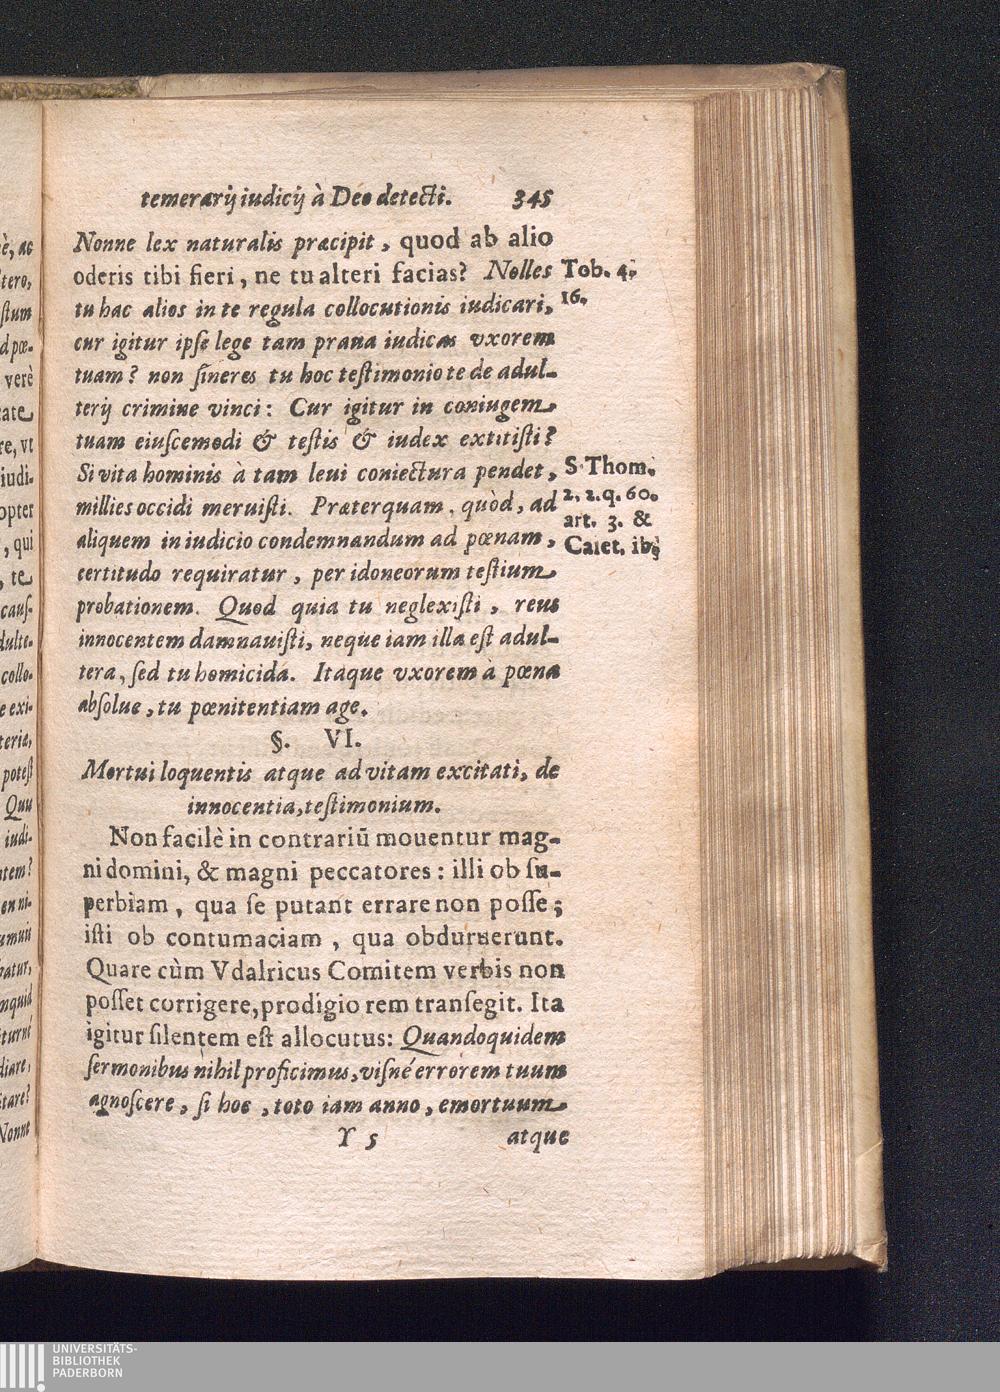 temerarij iudicij à Deo detecti. 345
Nonne lex naturalis præcipit, quod ab alio
oderis tibi fieri, ne tu alteri facias? Nolles
Tob. 4.
16.
tu hac alios in te regula collocutionis iudicari,
cur igitur ipſe lege tam praua iudicas vxorem
tuam? non ſineres tu hoc teſtimonio te de adul-
terij crimine vinci: Cur igitur in coniugem
tuam eiuſcemodi & teſtis & iudex extitiſti?
Si vita hominis à tam leui coniectura pendet,
S. Thom.
2. 2. q. 60.
art. 3. &
Caiet. ibi
millies occidi meruiſti. Præterquam, quòd, ad
aliquem in iudicio condemnandum ad pœnam,
certitudo requiratur, per idoneorum teſtium
probationem. Quod quia tu neglexiſti, reus
innocentem damnauiſti, neque iam illa eſt adul-
tera, ſed tu homicida. Itaque vxorem à pœna
abſolue, tu pœnitentiam age.
§. VI.
Mortui loquentis atque ad vitam excitati, de
innocentia, teſtimonium.
Non facilè in contrariū mouentur mag-
ni domini, & magni peccatores: illi ob ſu-
perbiam, qua ſe putant errare non poſſe;
iſti ob contumaciam, qua obduruerunt.
Quare cùm Vdalricus Comitem verbis non
poſſet corrigere, prodigio rem tranſegit. Ita
igitur ſilentem eſt allocutus: Quandoquidem
ſermonibus nihil proficimus, viſné errorem tuum
agnoſcere, ſi hoc, toto iam anno, emortuum
Y 5 atque
è, ac
tero,
ſtum
d pœ-
verè
cate
re, vt
iudi-
opter
, qui
, te
cauſ-
dulte-
collo-
e exi-
teria,
poteſt
Quu
iudi-
ntem?
en ni-
umuit
batur,
nquid
turné
diare,
itare?
Nonne
UNIVERSITÄTS-
BIBLIOTHEK
PADERBORN